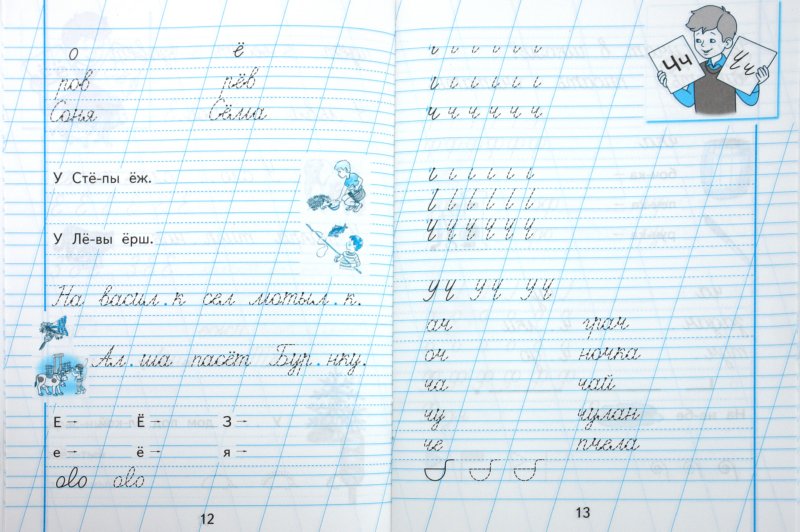 о ё
ров рёв
Соня Сёма
У Стё-пы ёж.
У Лё-вы ёрш.
На васил.к сел мотыл.к.
Ал.ша пасёт Бур.нку.
Е → Ё → З →
е → ё → я →
ого ого
12
Чч Чч
ч ч ч ч ч ч
У Ч У Ч У Ч
ач грач
оч ночка
ча чай
чу чулан
че пчела
13